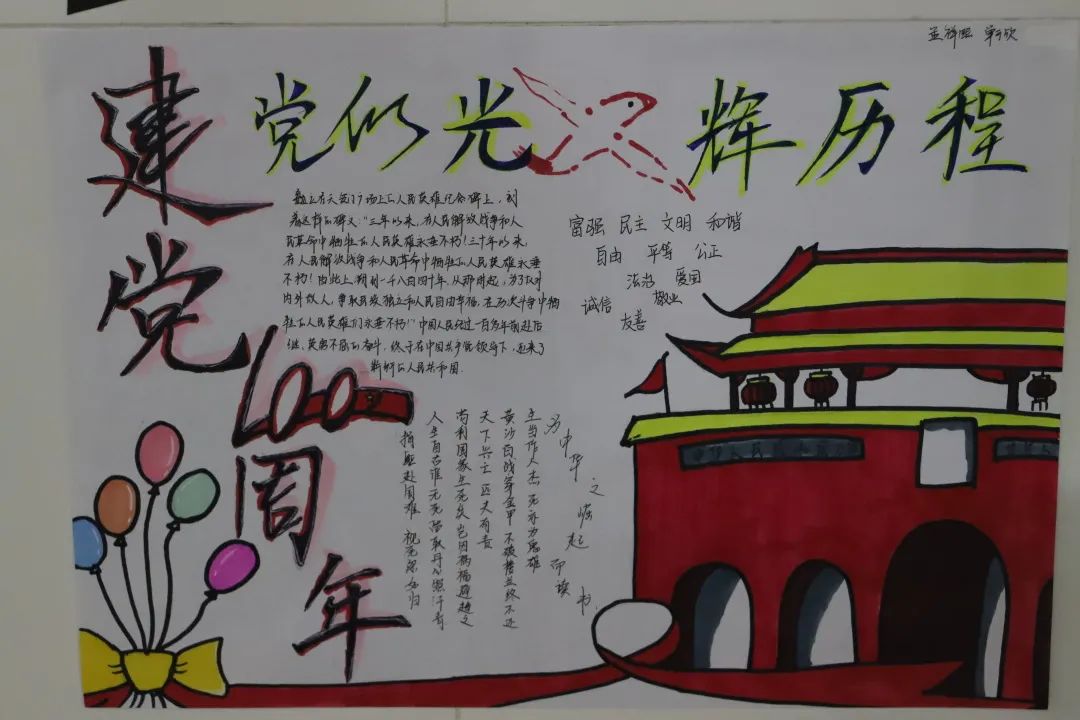 建党100周年
党的光辉历程
矗立在天安门广场上的人民英雄纪念碑上，刻
着这样的碑文："三年以来，在人民解放战争和人
民革命中牺牲的人民英雄永垂不朽！三十年以来，
在人民解放战争和人民革命中牺牲的人民英雄永垂
不朽！由此上溯到一千八百四十年，从那时起，为了反对
内外敌人，争取民族独立和人民自由幸福，在历次斗争中牺
牲的人民英雄们永垂不朽！"中国人民经过一百多年前赴后
继、英勇不屈的奋斗，终于在中国共产党领导下，迎来了
崭新的人民共和国.
富强 民主 文明 和谐
自由 平等 公正
法治 爱国
诚信 敬业
友善
为中华之崛起而读书
生当作人杰 死亦为鬼雄
黄沙百战穿金甲 不破楼兰终不还
天下兴亡 匹夫有责
苟利国家生死以 岂因祸福避趋之
人生自古谁无死 留取丹心照汗青
捐躯赴国难 视死忽如归